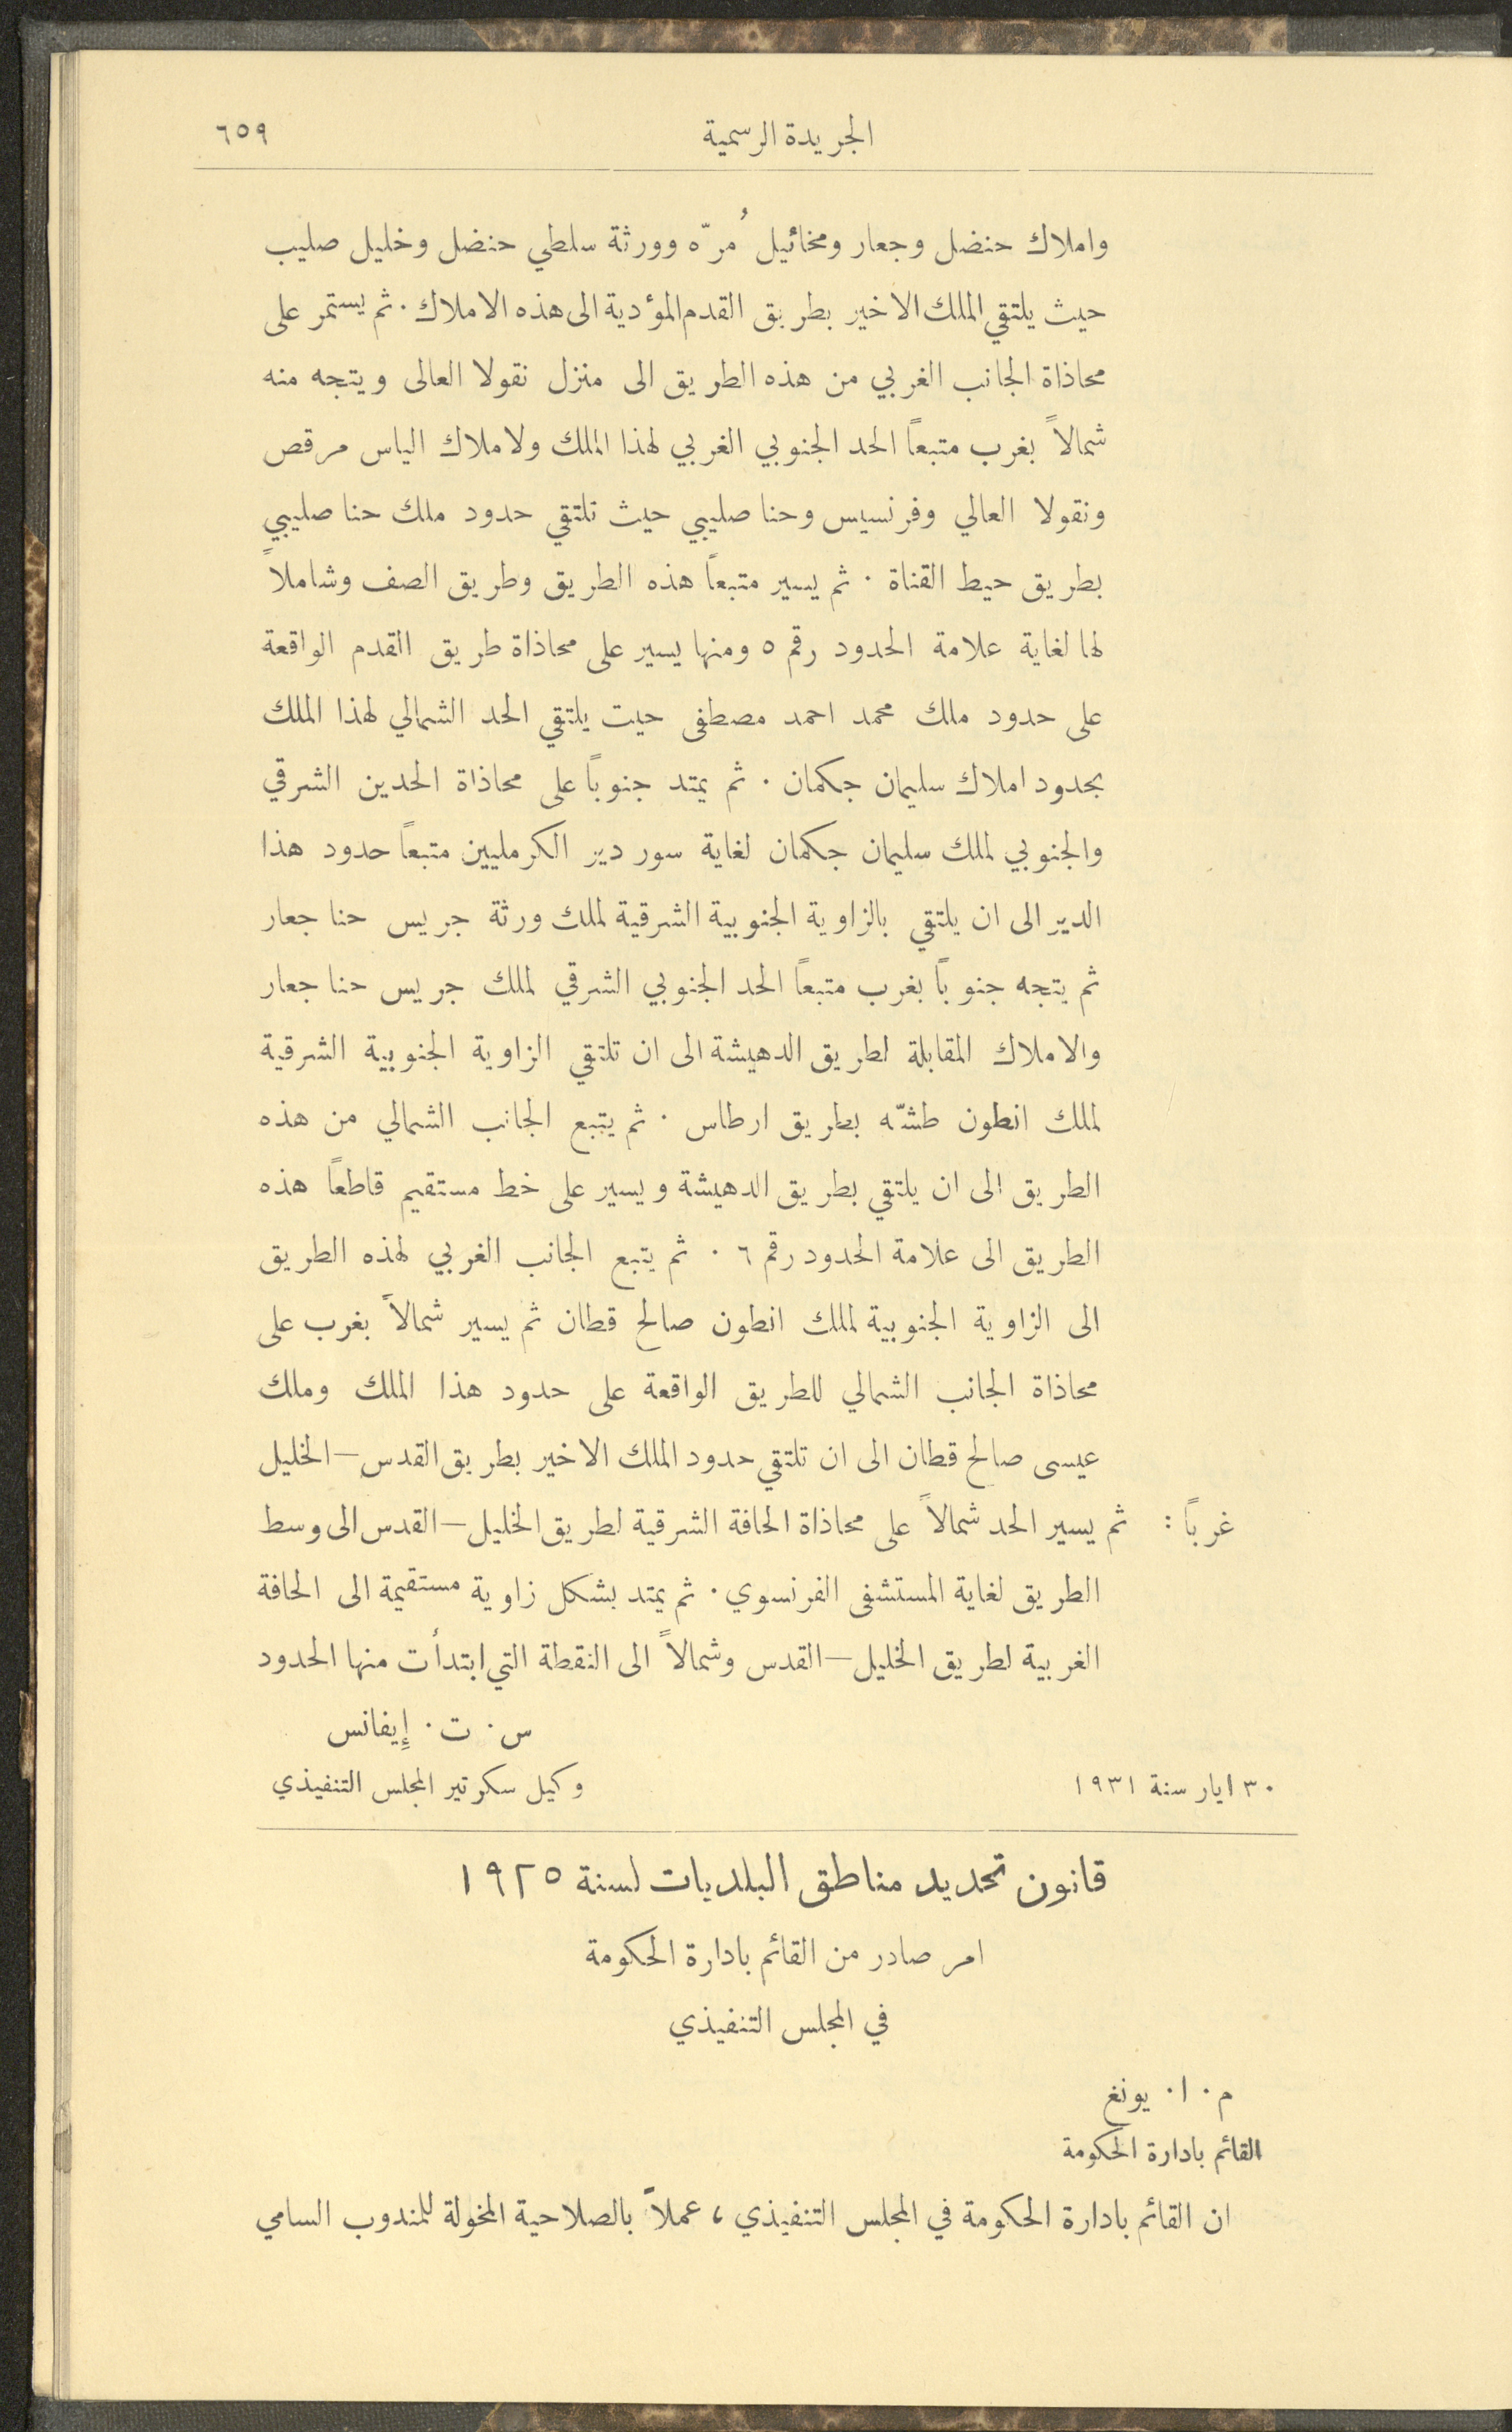 الجريدة الرسمية ٦٥٩
واملاك حنضل وجعار ومخائيل مُرّه وورثة سلطي حنضل وخليل صليب
حيث يلتقي الملك الاخير بطريق القدم المؤدية الى هذه الاملاك. ثم يستمر على
محاذاة الجانب الغربي من هذه الطريق الى منزل نقولا العالى ويتجه منه
شمالاً بغرب متبعاً الحد الجنوبي الغربي لهذا الملك ولاملاك الياس مرقص
ونقولا العالي وفرنسيس وحنا صليبي حيث تلتقي حدود ملك حنا صليبي
بطريق حيط القناة. ثم يسير متبعاً هذه الطريق وطريق الصف وشاملاً
لها لغاية علامة الحدود رقم ٥ ومنها يسير على محاذاة طريق القدم الواقعة
على حدود ملك محمد احمد مصطفى حيت يلتقي الحد الشمالي لهذا الملك
بحدود املاك سليمان جكمان. ثم يمتد جنوباً على محاذاة الحدين الشرقي
والجنوبي لملك سليمان جكمان لغاية سور دير الكرمليين متبعاً حدود هذا
الدير الى ان يلتقي بالزاوية الجنوبية الشرقية لملك ورثة جريس حنا جعار
ثم يتجه جنوباً بغرب متبعاً الحد الجنوبي الشرقي لملك جريس حنا جعار
والاملاك المقابلة لطريق الدهيشة الى ان تلتقي الزاوية الجنوبية الشرقية
لملك انطون طشّه بطريق ارطاس. ثم يتبع الجانب الشمالي من هذه
الطريق الى ان يلتقي بطريق الدهيشة ويسير على خط مستقيم قاطعاً هذه
الطريق الى علامة الحدود رقم ٦. ثم يتبع الجانب الغربي لهذه الطريق
الى الزاوية الجنوبية لملك انطون صالح قطان ثم يسير شمالاً بغرب على
محاذاة الجانب الشمالي للطريق الواقعة على حدود هذا الملك وملك
عيسى صالح قطان الى ان تلتقي حدود الملك الاخير بطريق القدس—الخليل
غرباً: ثم يسير الحد شمالاً على محاذاة الحافة الشرقية لطريق الخليل—القدس الى وسط
الطريق لغاية المستشفى الفرنسوي. ثم يمتد بشكل زاوية مستقيمة الى الحافة
الغربية لطريق الخليل—القدس وشمالاً الى النقطة التي ابتدأت منها الحدود
س. ت. إيفانس
٣٠ ايار سنة ١٩٣١ وكيل سكرتير المجلس التنفيذي
قانون تحديد مناطق البلديات لسنة ١٩٢٥
امر صادر من القائم بادارة الحكومة
في المجلس التنفيذي
م. ا. يونغ
القائم بادارة الحكومة
ان القائم بادارة الحكومة في المجلس التنفيذي، عملاً بالصلاحية المخولة للمندوب السامي